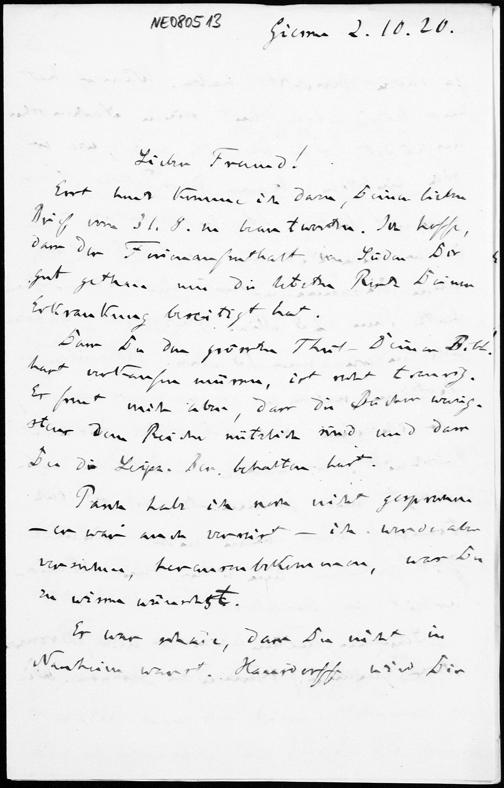 NE080513
Giessen 2.10.20.
Lieber Freund!
Erst heute komme ich dazu, Deinen lieben
Brief vom 31. 8. zu beantworten. Ich hoffe,
dass der Ferienaufenthalt im Süden Dir
gut gethan und die letzten Reste Deiner
Erkrankung beseitigt hat.
Dass Du den grössten Theil Deiner Bibl.
hast verkaufen müssen, ist recht traurig.
Es freut mich aber, dass die Bücher wenig-
stens dem Reiche nützlich sind und dass
Du die Leipz. Ber. behalten hast.
Pasch habe ich noch nicht gesprochen
– er war auch verreist – ich werde aber
versuchen, herauszubekommen, was Du
zu wissen wünschst.
Es war schade, dass Du nicht in
Nauheim warst. Hausdorff wird Dir